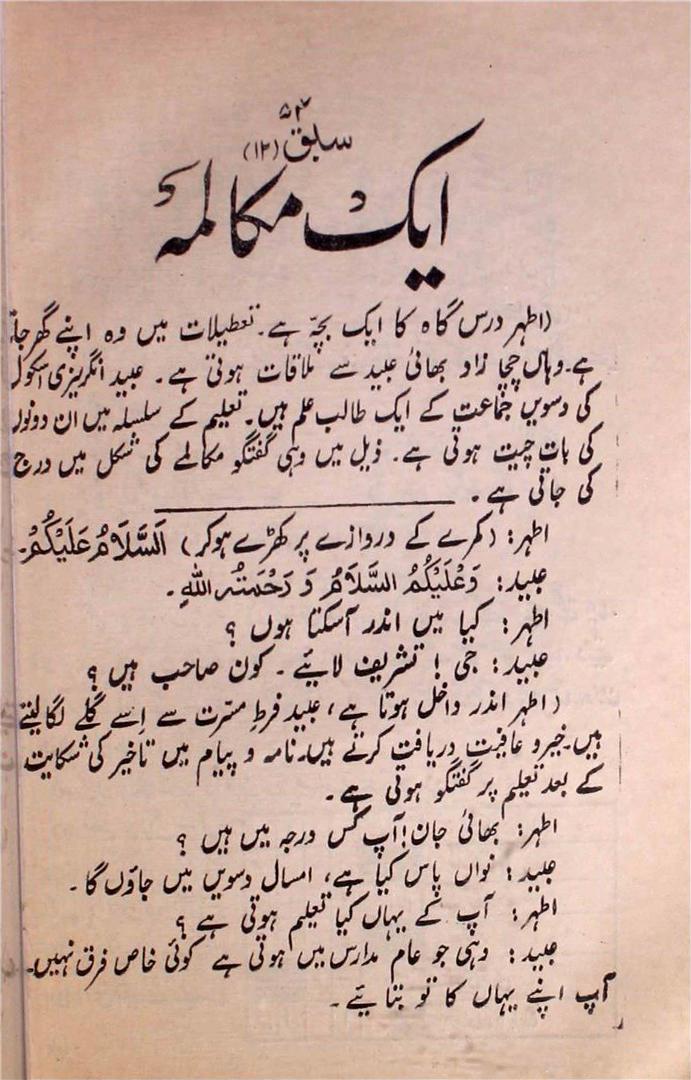 ۵۲
سبق (۱۲)
ایک مکالمہ
(اطہر درس گاہ کا ایک بچہ ہے۔ تعطیلات میں وہ اپنے گھر جاتا
ہے۔ وہاں چچا زاد بھائی عبید سے ملاقات ہوتی ہے۔ عبید انگریزی اسکول
کی دسویں جماعت کے ایک طالب علم ہیں۔ تعلیم کے سلسلہ میں ان دونوں
کی بات چیت ہوتی ہے۔ ذیل میں وہی گفتگو مکالمے کی شکل میں درج
کی جاتی ہے۔
اطہر: (کمرے کے دروازے پر کھڑے ہوکر) اَلسَّلَامُ عَلَیْکُمْ۔
عبید: وَعَلَیْکُمُ السَّلَامُ وَ رَحْمَتُہ اللّٰہِ۔
اطہر: کیا میں اندر آسکتا ہوں ؟
عبید: جی ! تشریف لائیے۔ کون صاحب ہیں ؟
(اطہر اندر داخل ہوتا ہے، عبید فرطِ مسرت سے اِسے گلے لگا لیتے
ہیں۔ خیر و عافیت دریافت کرتے ہیں۔ نامہ و پیام میں تاخیر کی شکایت
کے بعد تعلیم پر گفتگو ہوتی ہے۔
اطہر: بھائی جان! آپ کس درجہ میں ہیں ؟
عبید: نواں پاس کیا ہے، امسال دسویں میں جاؤں گا۔
اطہر: آپ کے یہاں کیا تعلیم ہوتی ہے ؟
عبید: وہی جو عام مدارس میں ہوتی ہے کوئی خاص فرق نہیں۔
آپ اپنے یہاں کا تو بتایئے۔